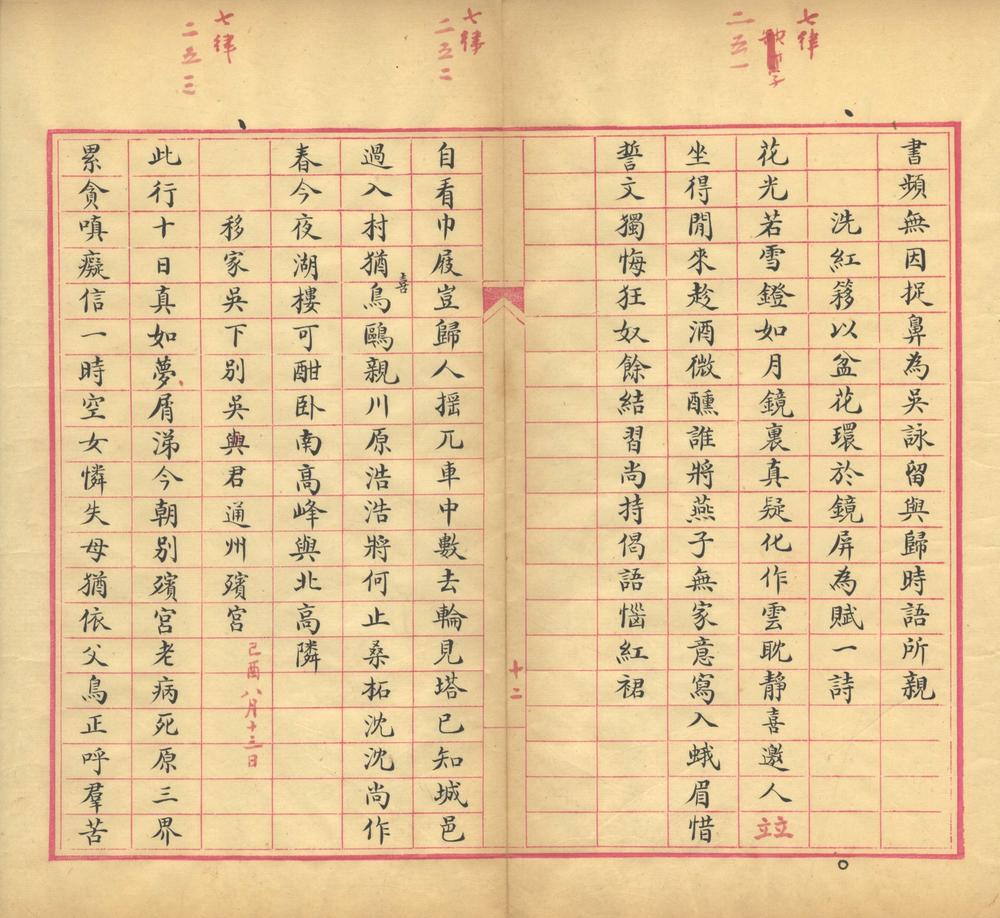 七律
二五一
書頻無因捉鼻為吳詠留與歸時語所親
洗紅簃以盆花環於鏡屏為賦一詩
花光若雪鐙如月鏡裏真疑化作雲耽靜喜邀人竝
坐得閒來趁酒微醺誰將燕子無家意寫入蛾眉惜
誓文獨悔狂奴餘結習尚持偈語惱紅裙
十二
七律
二五二
自看巾屐豈歸人搖兀車中數去輪見塔已知城邑
過入村猶喜鳥鷗親川原浩浩將何止桑柘沈沈尚作
春今夜湖樓可酣卧南高峰與北高隣
七律
二五三
移家吳下別吳興君通州殯宮
己酉八月十三日
此行十日真如夢屑涕今朝別殯宮老病死原三界
累貪嗔癡信一時空女憐失母猶依父鳥正呼羣苦